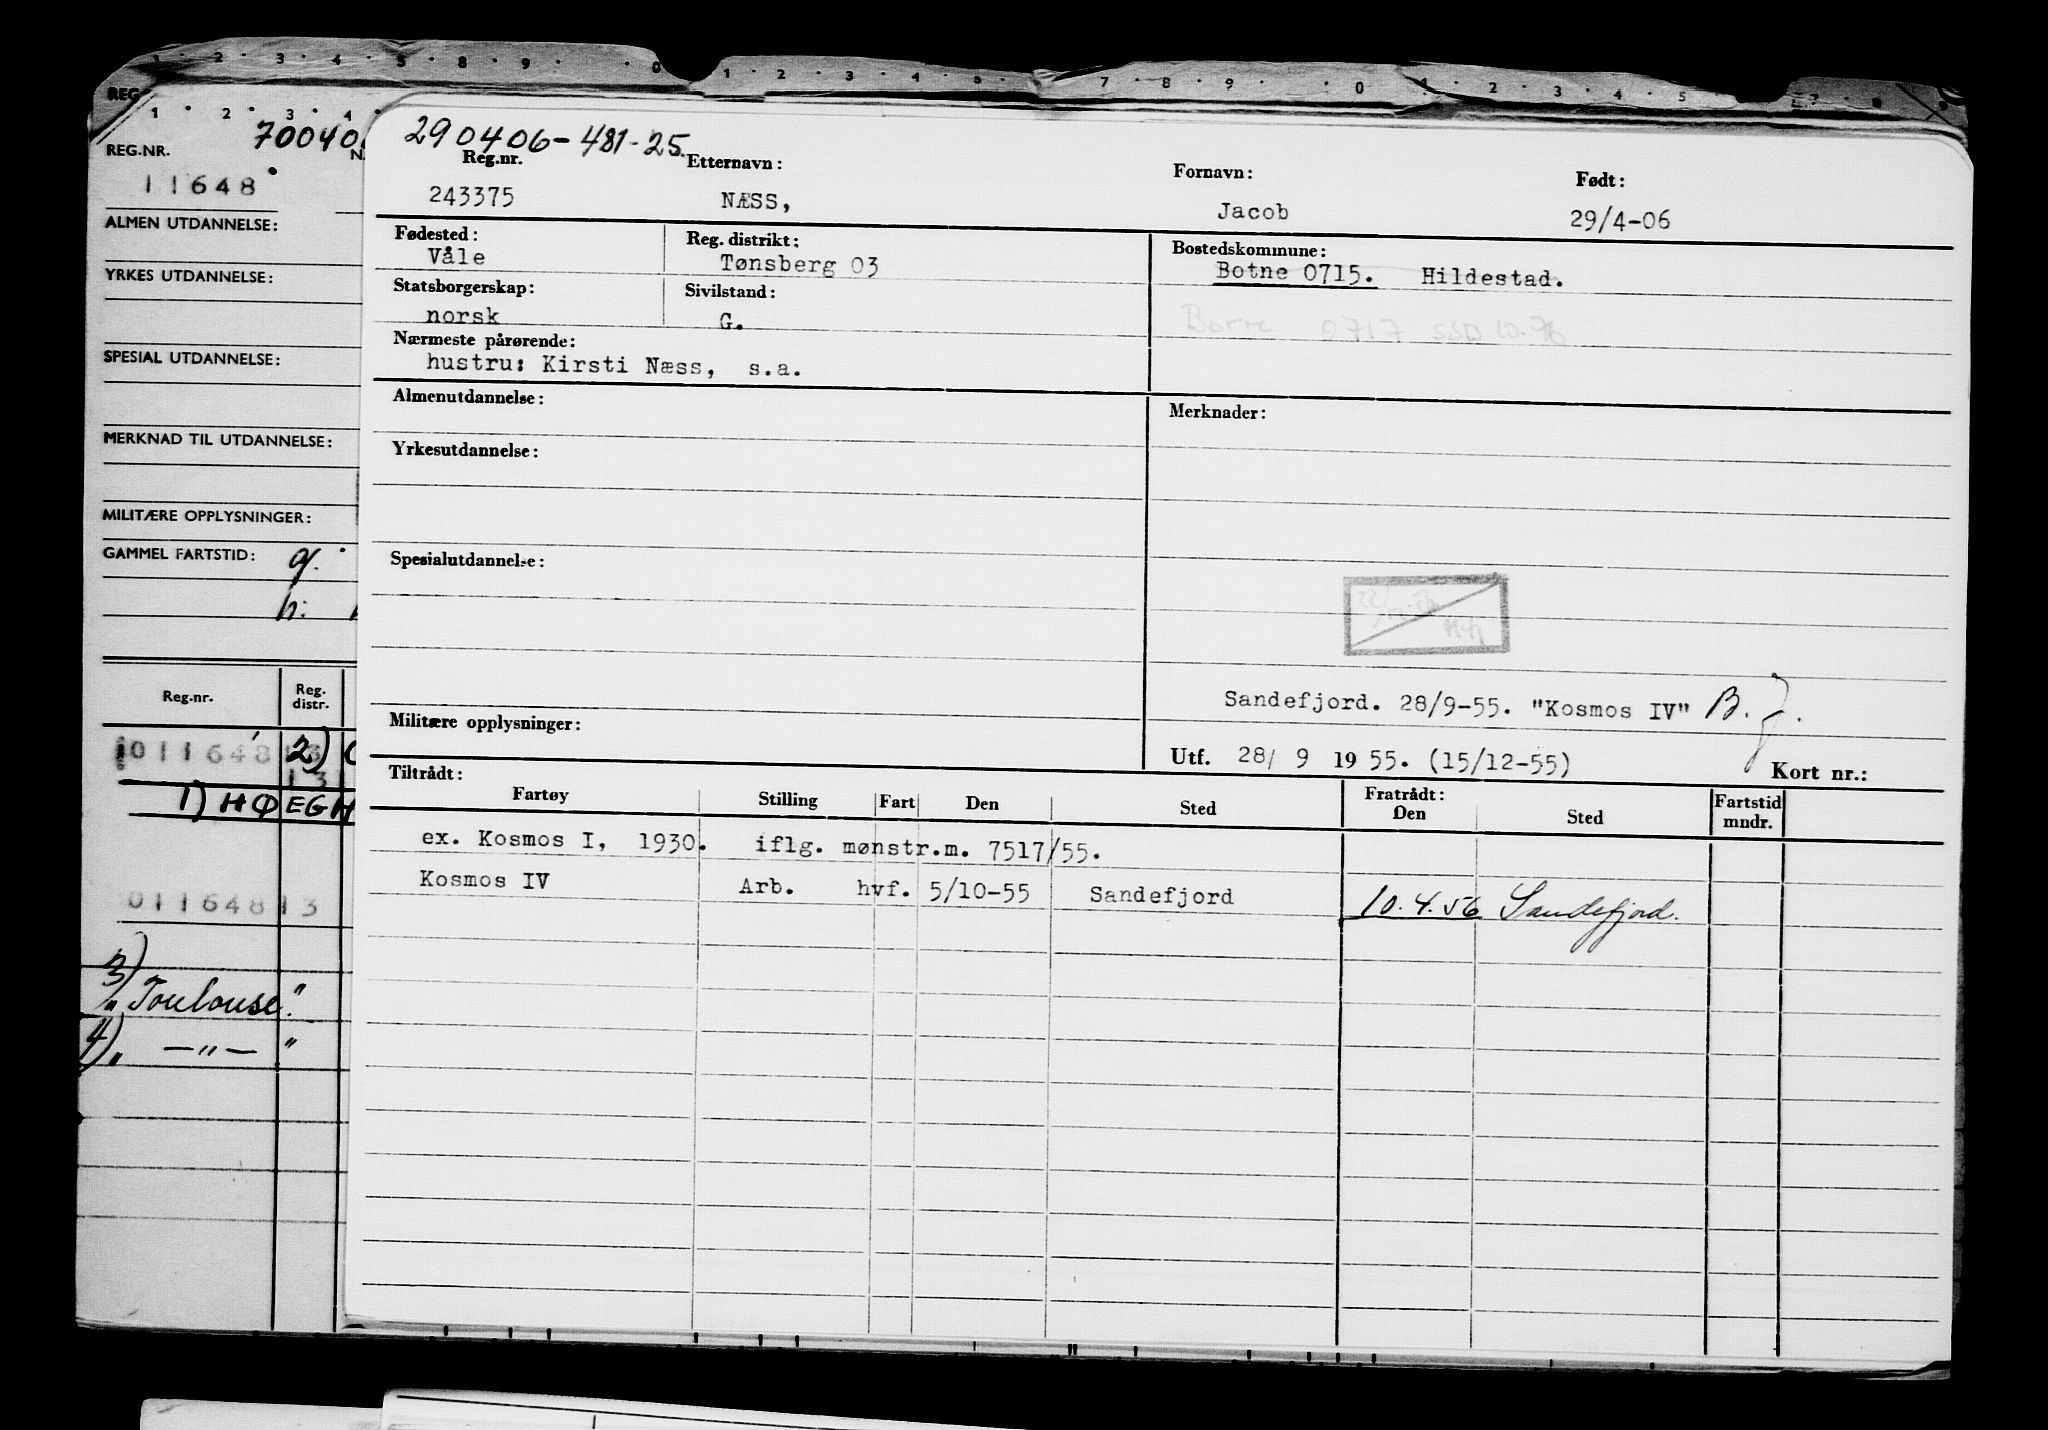 1 2 3 4 5 8 9 0 1 2 3 4 5 7 8 9 0 1 2 3 4 5 7 8 9
REG
1 2 3 4
REG.NR. 70040
11648
ALMEN UTDANNELSE:
YRKES UTDANNELSE:
SPESIAL UTDANNELSE:
MERKNAD TIL UTDANNELSE:
MILITÆRE OPPLYSNINGER:
GAMMEL FARTSTID: g.
h:
Reg.nr. Reg. distr.
011648 13 2)
13
1) HØEGH
01164813
3)
"Toulouse"
4) " —"— "
290406-481-25
Reg.nr. Etternavn: Fornavn: Født:
243375 NÆSS, Jacob 29/4-06
Fødested: Reg. distrikt: Bostedskommune:
Våle Tønsberg 03 Botne 0715. Hildestad.
Statsborgerskap: Sivilstand:
norsk G. Borre 0717 SSD 10.76
Nærmeste pårørende:
hustru: Kirsti Næss, s.a.
Almenutdannelse: Merknader:
Yrkesutdannelse:
Spesialutdannelse:
Sandefjord. 28/9-55. "Kosmos IV" B.J.
Militære opplysninger:
Utf. 28/ 9 1955. (15/12-55) Kort nr.:
Tiltrådt: Fratrådt:
Fartøy Stilling Fart Den Sted Den Sted Fartstid mndr.
ex. Kosmos I, 1930. iflg. mønstr.m. 7517/55.
Kosmos IV Arb. hvf. 5/10-55 Sandefjord 10.4.56 Sandefjord.